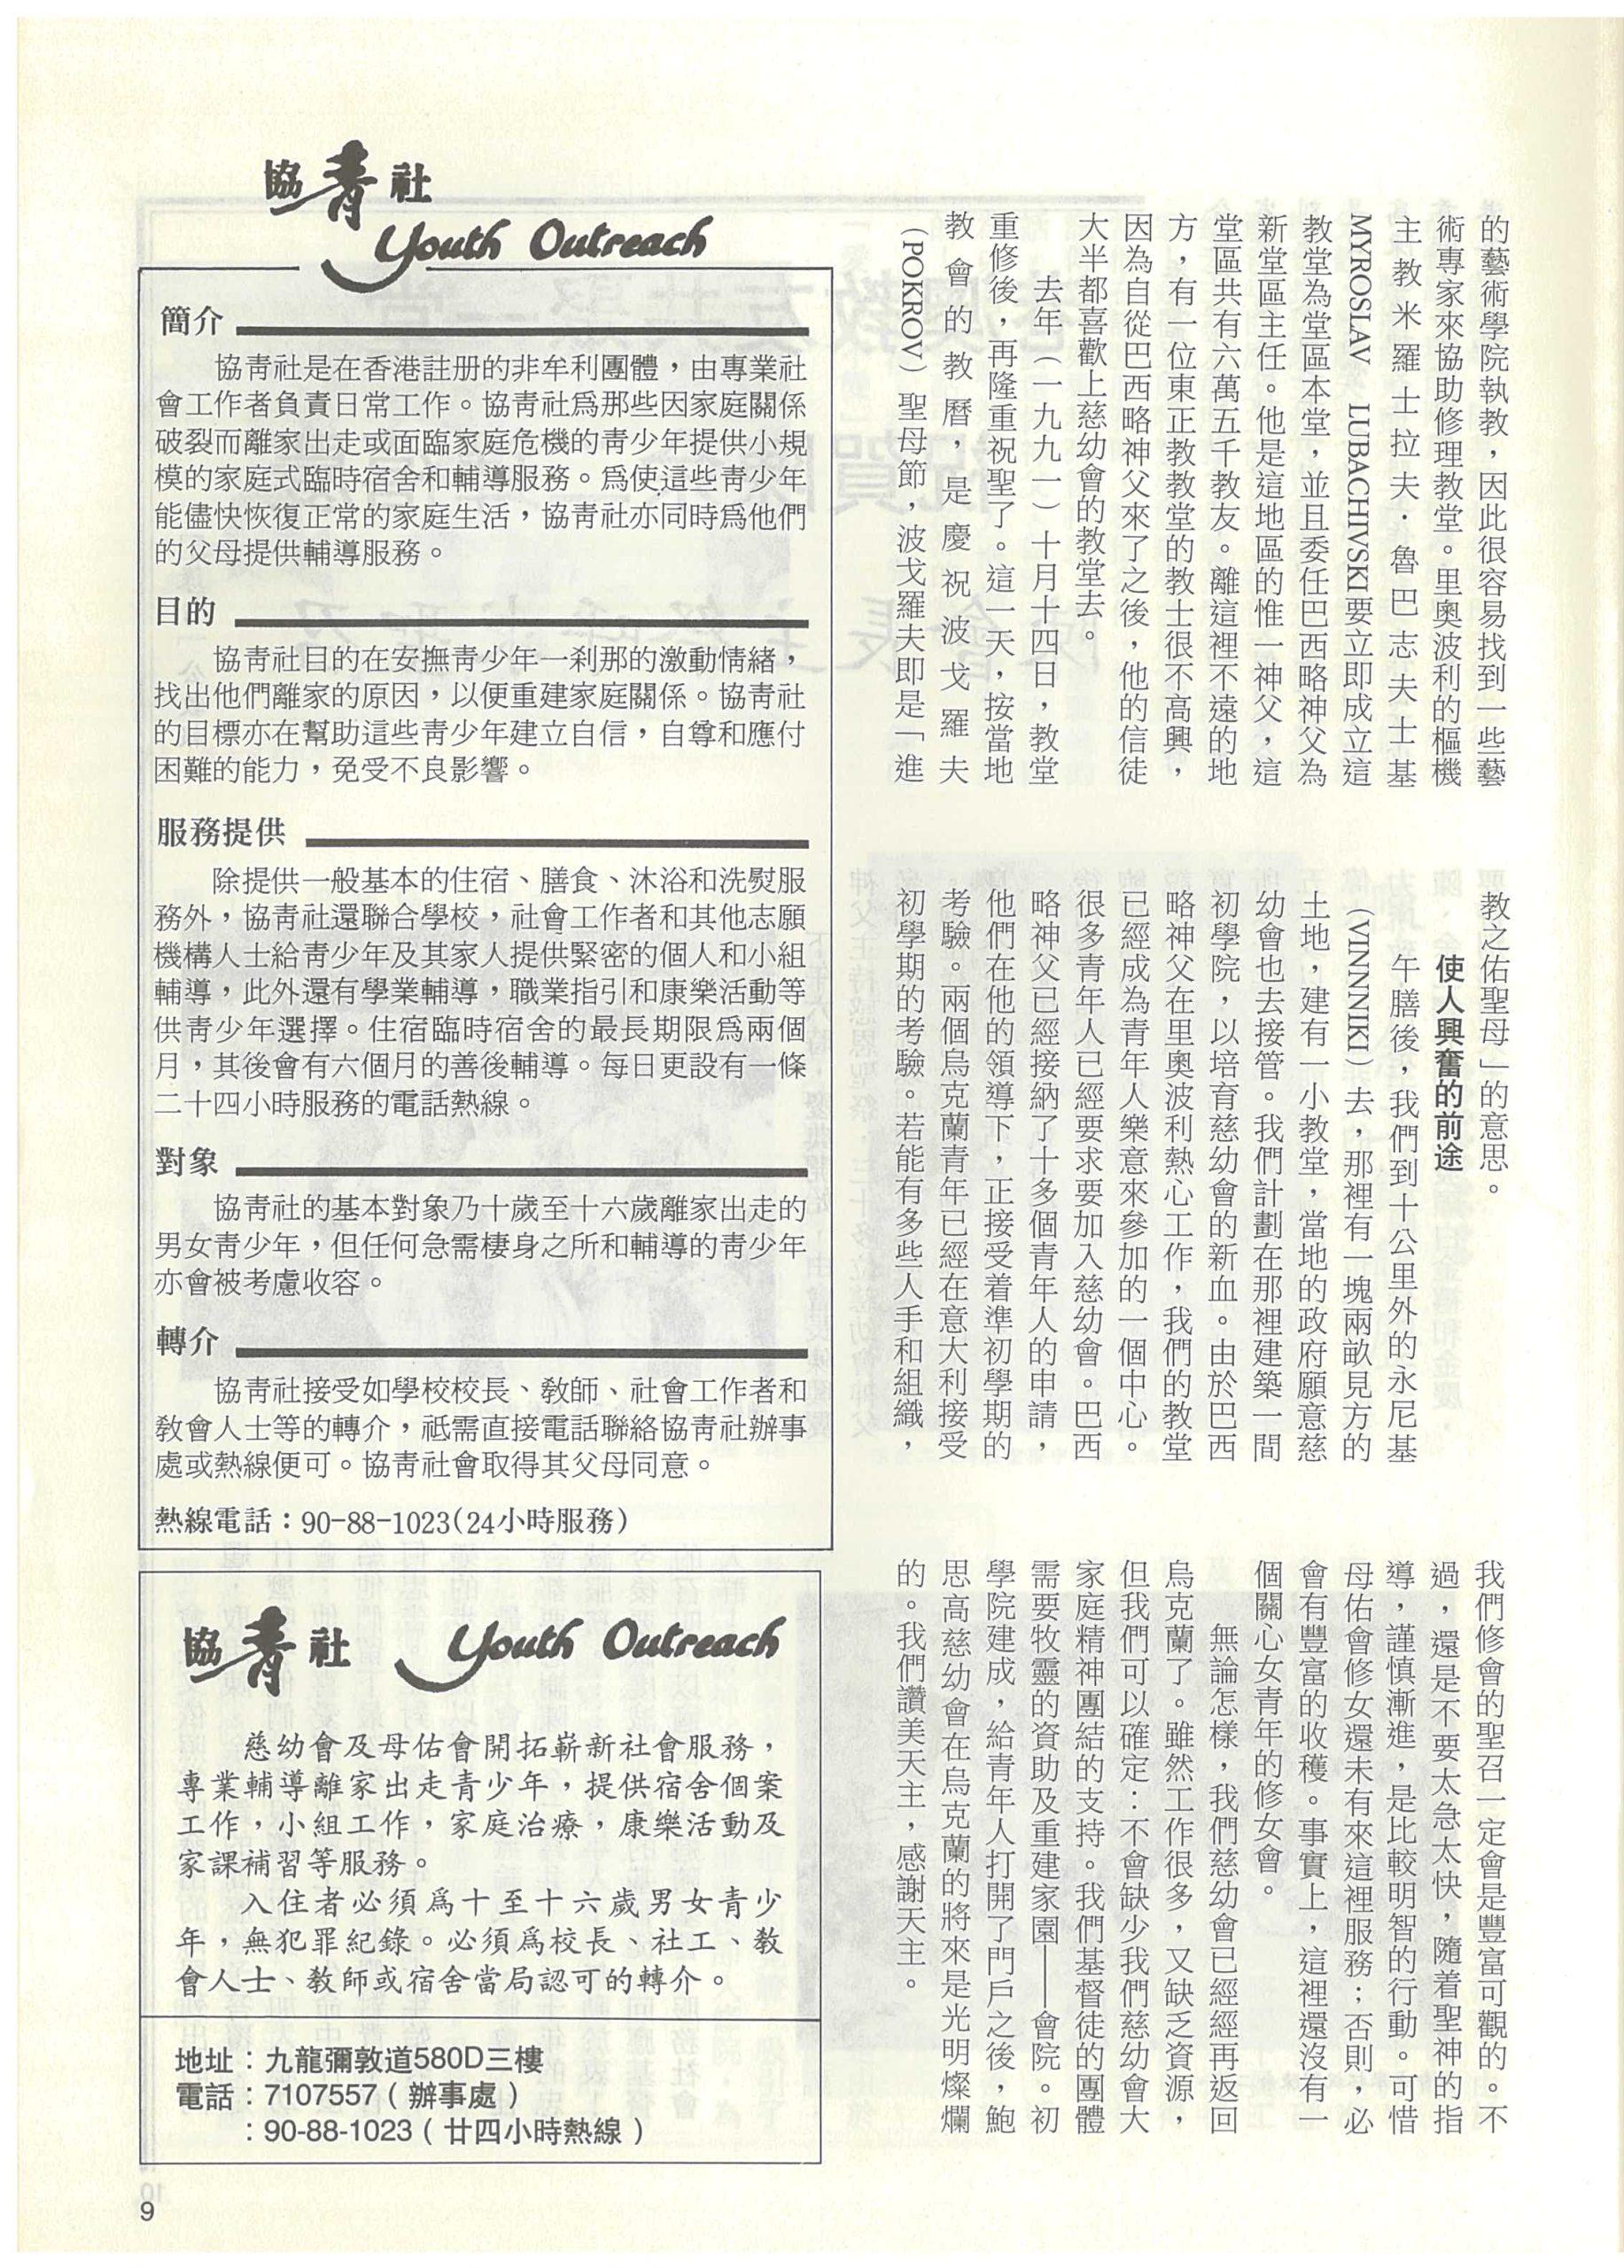 的藝術學院執教，因此很容易找到一些藝
術專家來協助修理教堂。里奧波利的樞機
主教米羅士拉夫．魯巴志夫士基
MYROSLAV LUBACHIVSKI要立即成立這
教堂為堂區本堂，並且委任巴西略神父為
新堂區主任。他是這地區的惟一神父，這
堂區共有六萬五千教友。離這裡不遠的地
方，有一位東正教教堂的教士很不高興，
因為自從巴西略神父來了之後，他的信徒
大半都喜歡上慈幼會的教堂去。
去年（一九九一）十月十四日，教堂
重修後，再隆重祝聖了。這一天，按當地
教會的教曆，是慶祝波戈羅夫
（POKROV）聖母節，波戈羅夫即是「進
教之佑聖母」的意思。
使人興奮的前途
午膳後，我們到十公里外的永尼基
（VINNNIKI）去，那裡有一塊兩畝見方的
土地，建有一小教堂，當地的政府願意慈
幼會也去接管。我們計劃在那裡建築一間
初學院，以培育慈幼會的新血。由於巴西
略神父在里奧波利熱心工作，我們的教堂
已經成為青年人樂意來參加的一個中心。
很多青年人已經要求要加入慈幼會。巴西
略神父已經接納了十多個青年人的申請，
他們在他的領導下，正接受着準初學期的
考驗。兩個烏克蘭青年已經在意大利接受
初學期的考驗。若能有多些人手和組織，
我們修會的聖召一定會是豐富可觀的。不
過，還是不要太急太快，隨着聖神的指
導，謹慎漸進，是比較明智的行動。可惜
母佑會修女還未有來這裡服務；否則，必
會有豐富的收穫。事實上，這裡還沒有一
個關心女青年的修女會。
無論怎樣，我們慈幼會已經經再返回
烏克蘭了。雖然工作很多，又缺乏資源，
但我們可以確定：不會缺少我們慈幼會大
家庭精神團結的支持。我們基督徒的團體
需要牧靈的資助及重建家園——會院。初
學院建成，給青年人打開了門戶之後，鮑
思高慈幼會在烏克蘭的將來是光明燦爛
的。我們讚美天主，感謝天主。
協青社
Youth Outreach
簡介
協靑社是在香港註册的非牟利團體，由專業社
會工作者負責日常工作。協靑社爲那些因家庭關係
破裂而離家出走或面臨家庭危機的靑少年提供小規
模的家庭式臨時宿舍和輔導服務。爲使這些靑少年
能儘快恢復正常的家庭生活，協靑社亦同時爲他們
的父母提供輔導服務。
目的
協靑社目的在安撫靑少年一刹那的激動情緒，
找出他們離家的原因，以便重建家庭關係。協靑社
的目標亦在幫助這些靑少年建立自信，自尊和應付
困難的能力，免受不良影響。
服務提供
除提供一般基本的住宿、膳食、沐浴和洗熨服
務外，協靑社還聯合學校，社會工作者和其他志願
機構人士給靑少年及其家人提供緊密的個人和小組
輔導，此外還有學業輔導，職業指引和康樂活動等
供靑少年選擇。住宿臨時宿舍的最長期限爲兩個
月，其後會有六個月的善後輔導。每日更設有一條
二十四小時服務的電話熱線。
對象
協靑社的基本對象乃十歲至十六歲離家出走的
男女靑少年，但任何急需棲身之所和輔導的靑少年
亦會被考慮收容。
轉介
協靑社接受如學校校長、敎師、社會工作者和
敎會人士等的轉介，祗需直接電話聯絡協靑社辦事
處或熱線便可。協靑社會取得其父母同意。
熱線電話：90-88-1023(24小時服務)
協青社 Youth Outreach
慈幼會及母佑會開拓嶄新社會服務，
專業輔導離家出走青少年，提供宿舍個案
工作，小組工作，家庭治療，康樂活動及
家課補習等服務。
入住者必須爲十至十六歲男女青少
年，無犯罪紀錄。必須爲校長、社工、教
會人士、教師或宿舍當局認可的轉介。
地址：九龍彌敦道580D三樓
電話：7107557（辦事處）
：90-88-1023（廿四小時熱線）
9